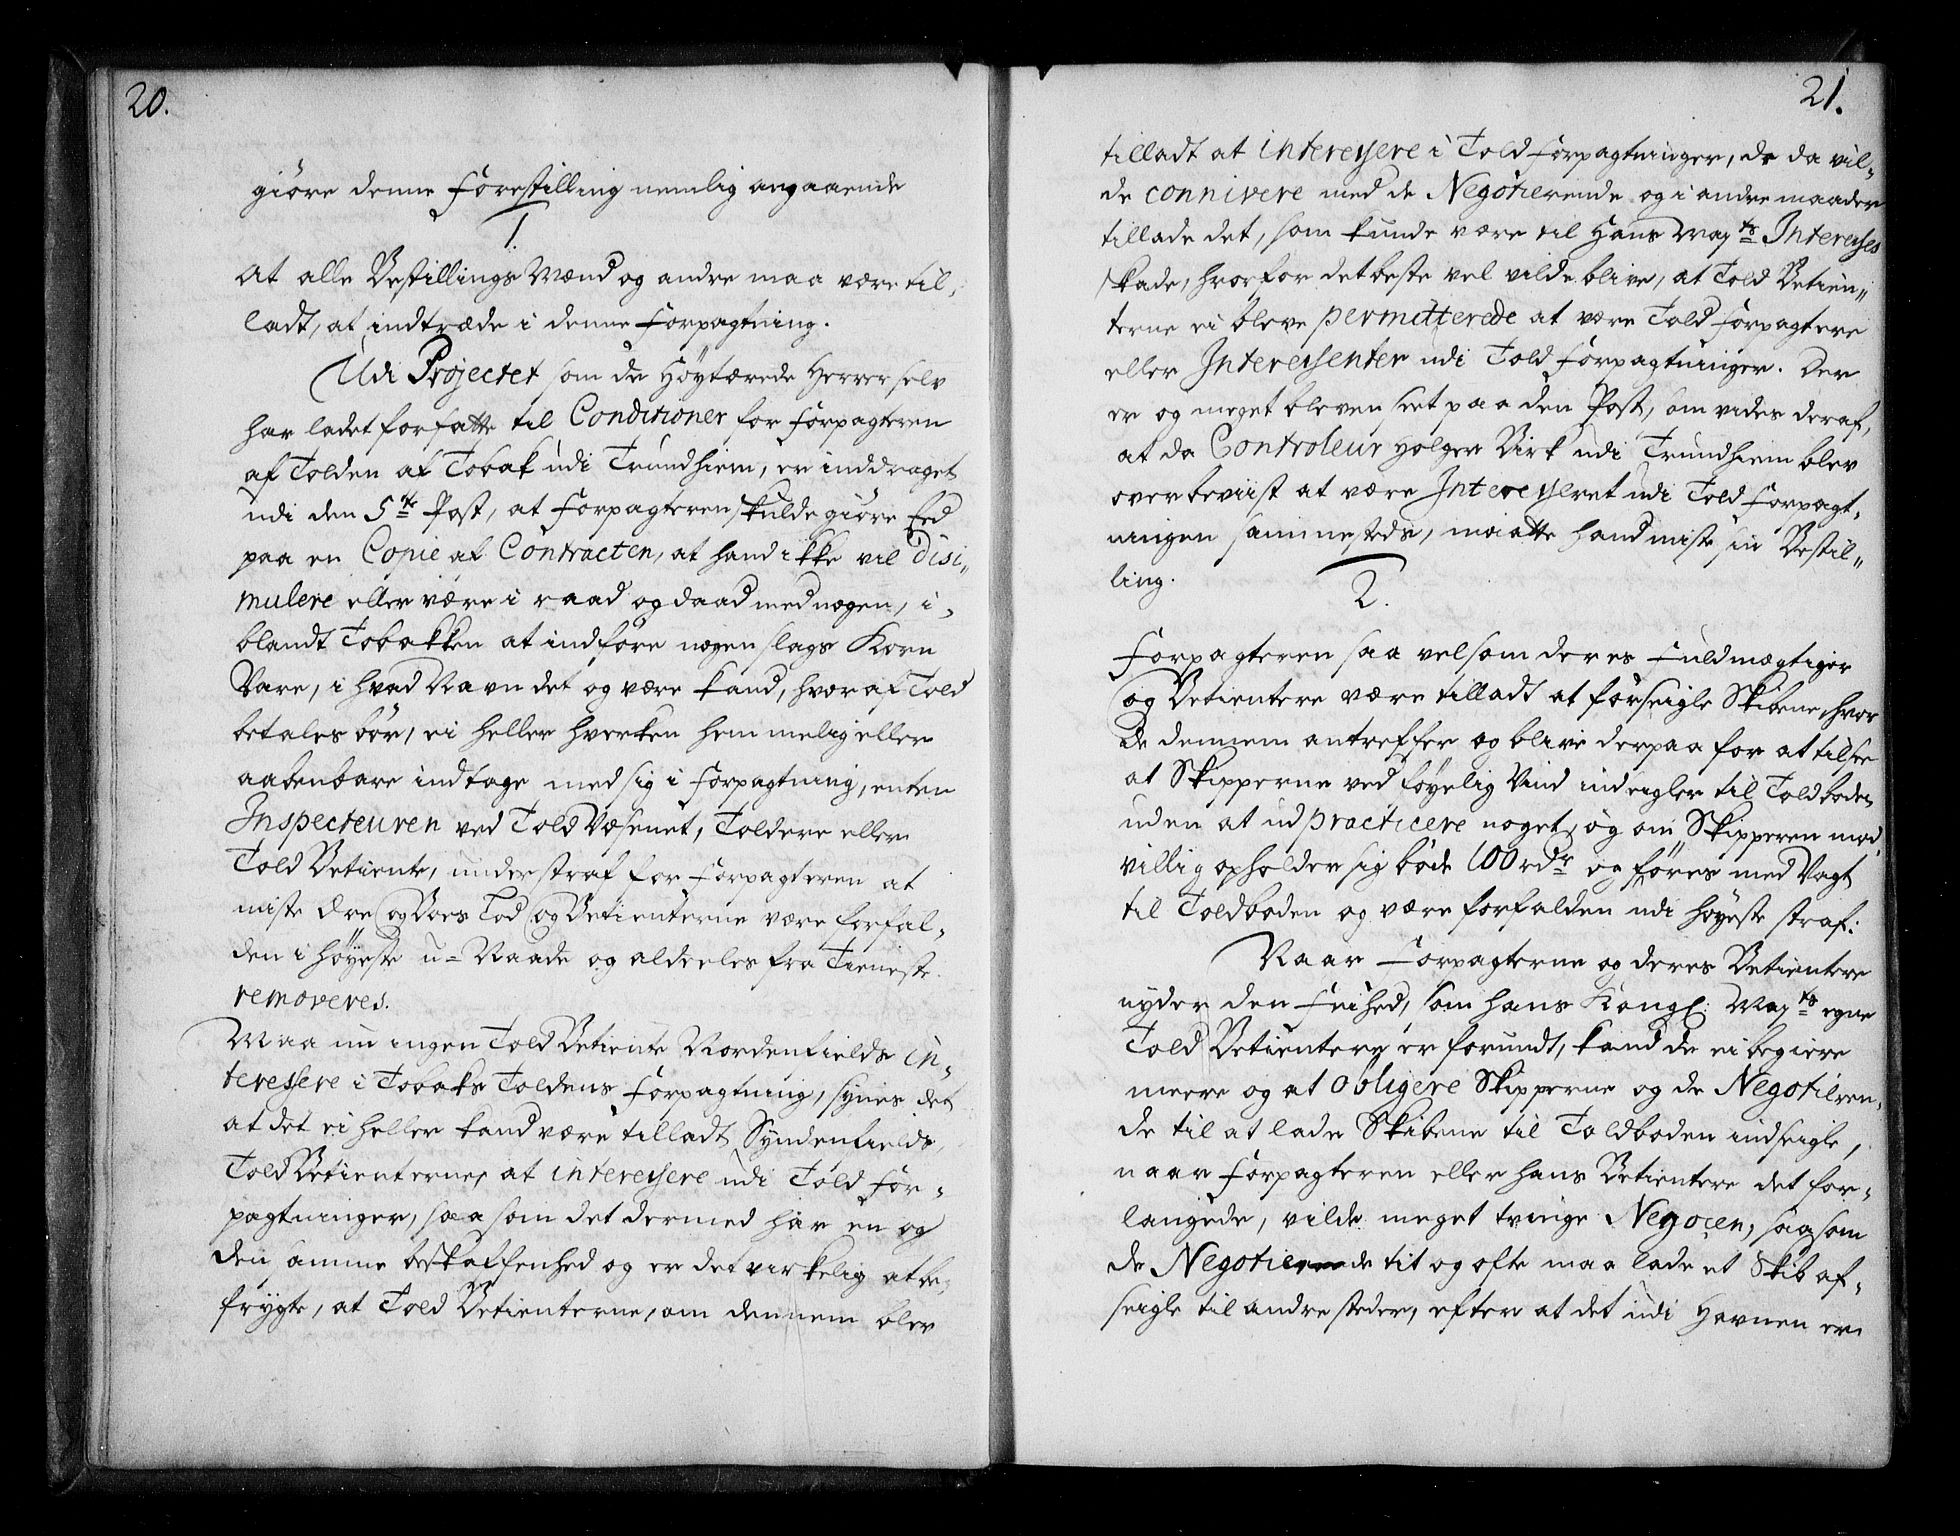 20.
giöre denne Forestilling nemlig angaaende
1.
At alle Bestillings Mænd og andre maa være til,
ladt, at indtræde i denne Forpagtning.
Udi Projectet som de Höytærede Herrer selv
har ladet forfatte til Conditioner for Forpagteren
af Tolden af Tobak udi Trundhiem, er inddraget
udi den 5te Post, at Forpagteren skulde giöre Eed
paa en Copie af Contracten, at hand ikke vil disi„
mulere eller være i raad og daad med nogen, i„
blandt Tobakken at indföre nogen slags Korn
Vare, i hvad Navn det og være kand, hvoraf Told
betales bör, ei heller hverken hemmelig eller
aabenbare indtage med sig i Forpagtning, enten
Inspecteuren ved Told Væsenet, Toldere eller
Told Betiente, under straf for Forpagteren at
miste Ære og Boes Lod og Betienterne være forfal„
den i höyeste u= Naade og aldeeles fra Tieneste
removeres.
Maa nu ingen Told Betiente Nordenfields in„
teressere i Tobaks Toldens Forpagtning, synes det
at det ei heller kand være tilladt Syndenfields,
Told Betienterne, at interessere udi Told For„
pagtninger, saasom det dermed har en og
den samme beskaffenhed og er det virkelig at be„
frygte, at Told Betienterne, om dennem blev
21.
tilladt at interessere i Told Forpagtninger, de da vil„
de connivere med de Negotierende og i andre maader
tillade det, som kunde være til Hans Mayts Interesses
skade, hvorfor det beste vel vilde blive, at Told Betien„
terne ei bleve permitterede at være Told Forpagtere
eller Interessenter udi Told Forpagtninger. Der
er og meget bleven seet paa den Post, som vides deraf,
at da Controleur Holger Birk udi Trundhiem blev
overbeviist at være Interesseret udi Told Forpagt„
ningen sammesteds, maatte hand miste sin Bestil„
ling.
2.
Forpagteren saa vel som deres Fuldmægtiger
og Betientere være tilladt at forseigle Skibene, hvor
de dennem antreffer og blive derpaa for at tilsee
at Skipperne ved föyelig Vind indseigler til Toldboden
uden at udpracticere noget, og om Skipperen mod„
villig opholder sig böde 100 rdr og föres med Vagt
til Toldboden og være forfalden udi höyeste straf:
Naar Forpagterne og deres Betientere
nyder den Friihed, som hans Kongl: Mayts egne
Told Betientere er forundt, kand de ei begiere
meere og at obligere Skipperne og de Negotieren„
de til at lade Skibene til Toldboden indseigle,
naar Forpagteren eller hans Betientere det for„
langede, vilde meget tvinge Negocen, saasom
de Negotierende tit og ofte maa lade et Skib af„
seigle til andre steder, efter at det udi Havnen er